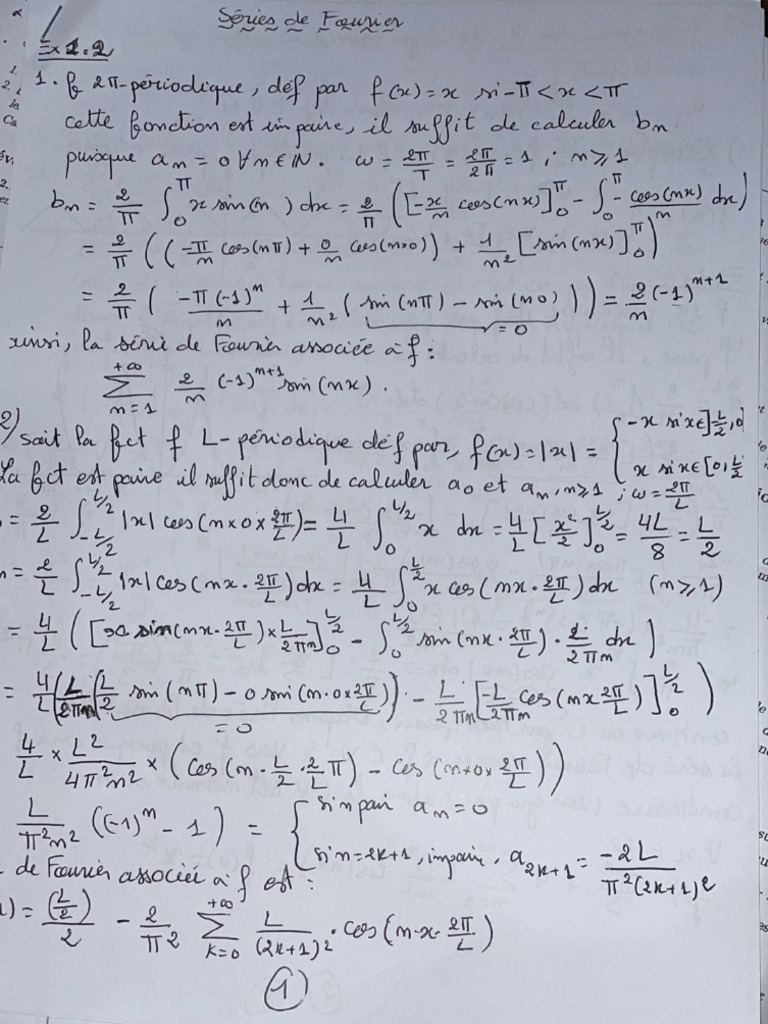 Séries de Fourier
Ex 1.2
1. f 2π-périodique, déf par f(x) = x si -π < x < π
cette fonction est impaire, il suffit de calculer bn.
puisque an = 0 ∀ n ∈ IN. ω = 2π/T = 2π/2π = 1 ; n ≥ 1
bn = 2/π ∫₀^π x sin(n ) dx = 2/π ([-x/n cos(nx)]₀^π - ∫₀^π -cos(nx)/n dx)
= 2/π ((-π/n cos(nπ) + 0/n cos(n×0)) + 1/n² [sin(nx)]₀^π)
= 2/π (-π(-1)^n/n + 1/n² (sin(nπ) - sin(n0))) = 2/n (-1)^(n+1)
= 0
ainsi, la série de Fourier associée à f :
∑_{n=1}^{+∞} 2/n (-1)^(n+1) sin(nx).
2) soit la fct f L-périodique déf par, f(x) = |x| = { -x si x ∈ ]-L/2, 0[
x si x ∈ [0, L/2
La fct est paire il suffit donc de calculer a0 et an, n ≥ 1 ; ω = 2π/L
= 2/L ∫_{-L/2}^{L/2} |x| cos(n × 0 × 2π/L) = 4/L ∫₀^{L/2} x dx = 4/L [x²/2]₀^{L/2} = 4L/8 = L/2
n = 2/L ∫_{-L/2}^{L/2} |x| cos(nx · 2π/L) dx = 4/L ∫₀^{L/2} x cos(nx · 2π/L) dx (n ≥ 1)
= 4/L ([x sin(nx · 2π/L) × L/2πn]₀^{L/2} - ∫₀^{L/2} sin(nx · 2π/L) · L/2πn dx)
= 4/L (L/2πn (L/2 sin(nπ) - 0 sin(n · 0 × 2π/L)) - L/2πn [-L/2πn cos(nx 2π/L)]₀^{L/2})
= 0
4/L × L²/4π²n² × (cos(n · L/2 · 2/L π) - cos(n × 0 × 2π/L))
L/π²n² ((-1)^n - 1) = { si n pair an = 0
si n = 2k+1, impair, a_{2k+1} = -2L/π²(2k+1)²
de Fourier associée à f est :
) = (L/2)/2 - 2/π² ∑_{k=0}^{+∞} L/(2k+1)² · cos(n · x · 2π/L)
1